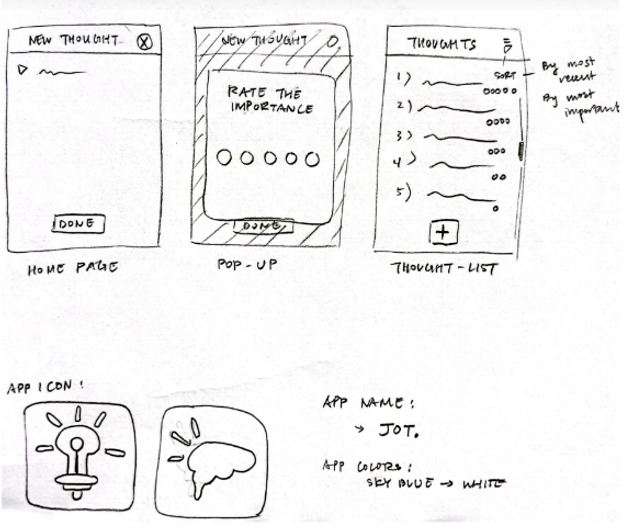 NEW THOUGHT
DONE
HOME PAGE
NEW THOUGHT
RATE THE
IMPORTANCE
DONE
POP-UP
THOUGHTS
SORT
By most
recent
By most
important
1)
2)
3)
4)
5)
+
THOUGHT-LIST
APP ICON:
APP NAME:
→ JOT.
APP COLORS:
SKY BLUE → WHITE